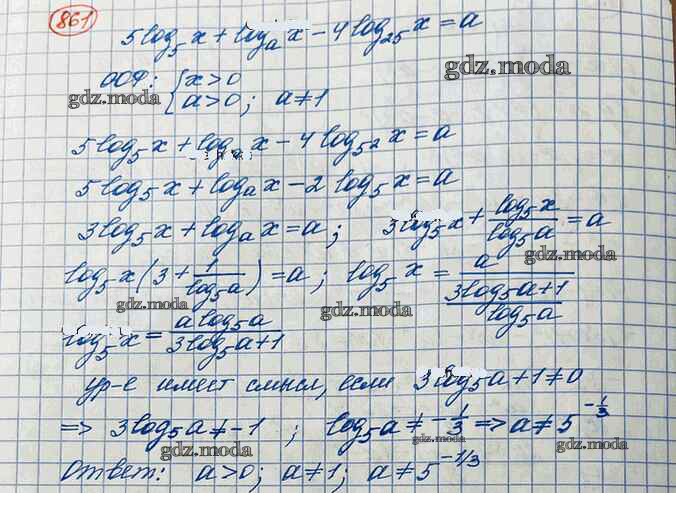 861
5log₅x + logₐx − 4log₂₅x = a
gdz.moda
ООФ: { x > 0
gdz.moda { a > 0; a ≠ 1
5log₅x + logₐx − 4log₅²x = a
5log₅x + logₐx − 2log₅x = a
3log₅x + logₐx = a; 3log₅x + log₅x / log₅a = a
gdz.moda
log₅x (3 + 1 / log₅a) = a; log₅x = a / ((3log₅a + 1) / log₅a)
gdz.moda gdz.moda gdz.moda
log₅x = a log₅a / (3log₅a + 1)
ур-е имеет смысл, если 3log₅a + 1 ≠ 0
=> 3log₅a ≠ −1; log₅a ≠ −1/3 => a ≠ 5^(−1/3)
gdz.moda gdz.moda
Ответ: a > 0; a ≠ 1; a ≠ 5^(−1/3)
gdz.moda gdz.moda